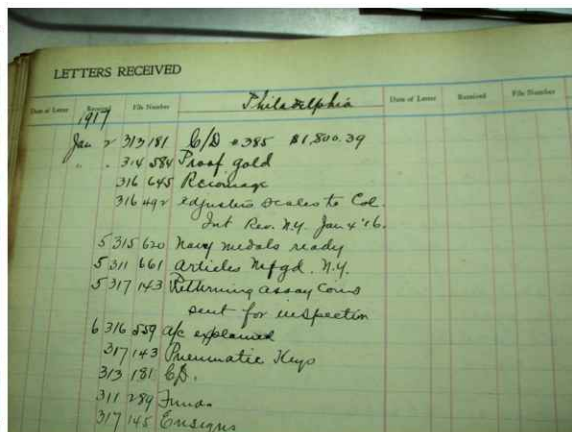 LETTERS RECEIVED
Philadelphia
Date of Letter Received File Number Date of Letter Received File Number
1917
Jan 2 313 181 C/D #385 $1,800.39
" " 314 584 Proof gold
316 645 Recoinage
316 492 adjusters scales to Col.
Int Rev. N.Y. Jan 4 '16.
5 315 620 Navy medals ready
5 311 661 articles Mfgd. N.Y.
5 317 143 Returning assay Coins
sent for inspection
6 316 559 a/c explained
317 143 Pneumatic Keys
313 181 C/D.
311 289 Funds
317 145 Ensigns